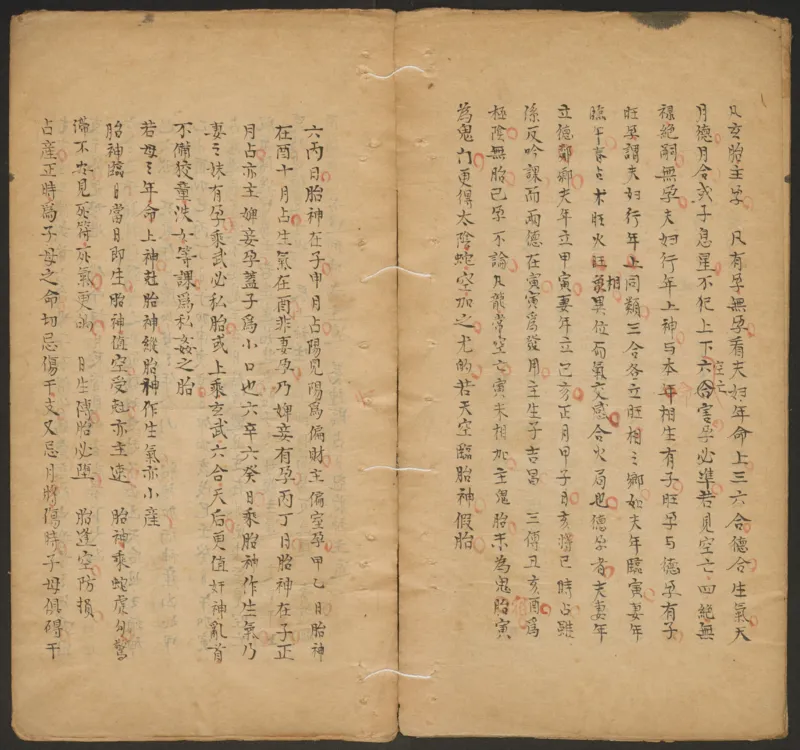 又亥胎主孕 凡有孕無孕看夫妇年命上三六合德合生氣天
月德月合或子息星不犯上下六合害孕必準若見空亡四絕無
空亡
禄絕嗣無孕夫妇行年上神与本年相生有子旺孕与德孕有子
旺孕謂夫妇行年上同類三合各立旺相之鄉如夫年臨寅妻年
臨午春占木旺火相異位而氣交感合火局也德孕者夫妻年
立德鄉夫年立甲寅妻年立己亥正月甲子日亥將巳時占雖
係反吟課而兩德在寅寅為發用主生子吉昌 三傳丑亥酉為
極陰無胎已孕不論凡龍常空亡寅未相加主鬼胎未為鬼胎寅
為鬼門更得太陰蛇空加之尤的若天空臨胎神假胎
六丙日胎神在子甲月占陽見陽為偏財主偏室孕甲乙日胎神
在酉十月占生氣在酉非妻孕乃婢妾有孕丙丁日胎神在子正
月占亦主婢妾孕蓋子為小口也六辛六癸日乘胎神作生氣乃
妻之妹有孕乘武必私胎或上乘玄武六合天后更值奸神亂首
不備狡童泆女等課為私姦之胎
若母之年命上神尅胎神縱胎神作生氣亦小產
胎神臨日當日即生胎神值空受尅亦主速 胎神乘蛇虎勾驚
滯不安見死符死氣更的 日生傳胎必墮 胎逢空防損
占産正時為子母之命切忌傷干支又忌月將傷時子母俱碍干